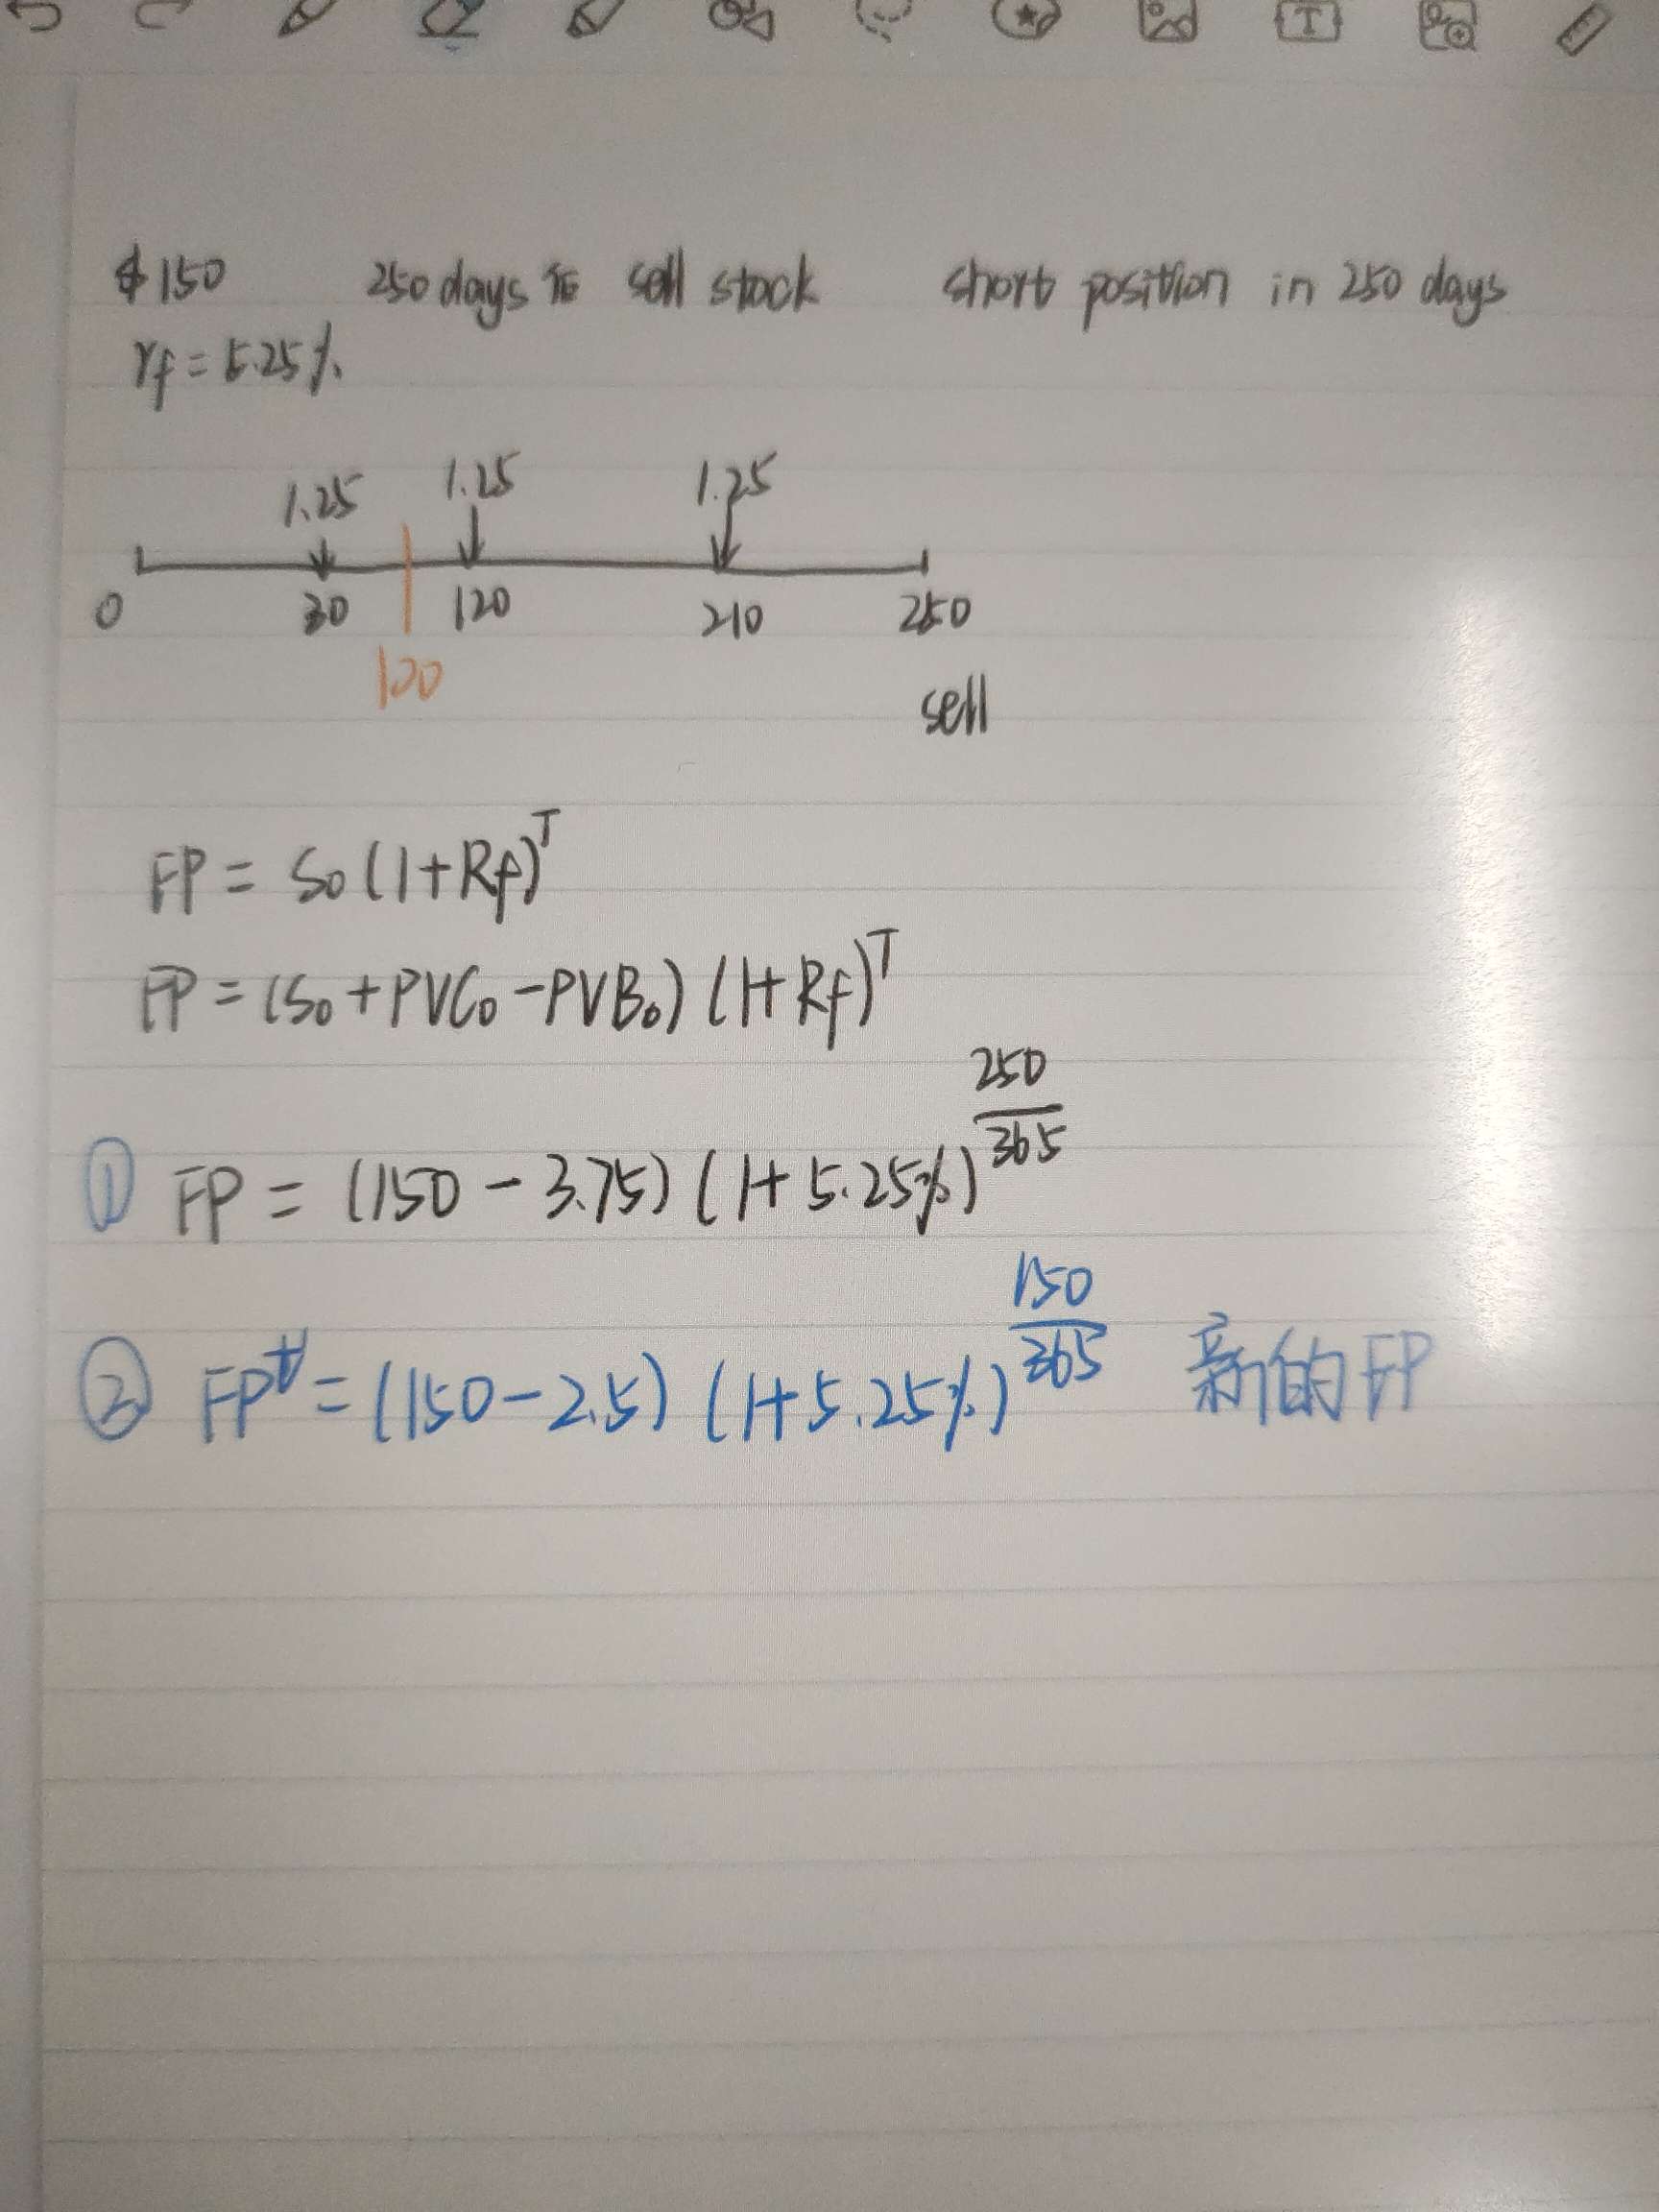 $150 250 days 后 sell stock short position in 250 days
rf = 5.25%
1.25 1.25 1.25
0 30 120 210 250
100
sell
FP = S₀(1+Rf)ᵀ
FP = (S₀ + PVC₀ - PVB₀)(1+Rf)ᵀ
① FP = (150 - 3.75)(1+5.25%)^(250/365)
② FPᵗ = (150 - 2.5)(1+5.25%)^(150/365) 新的FP